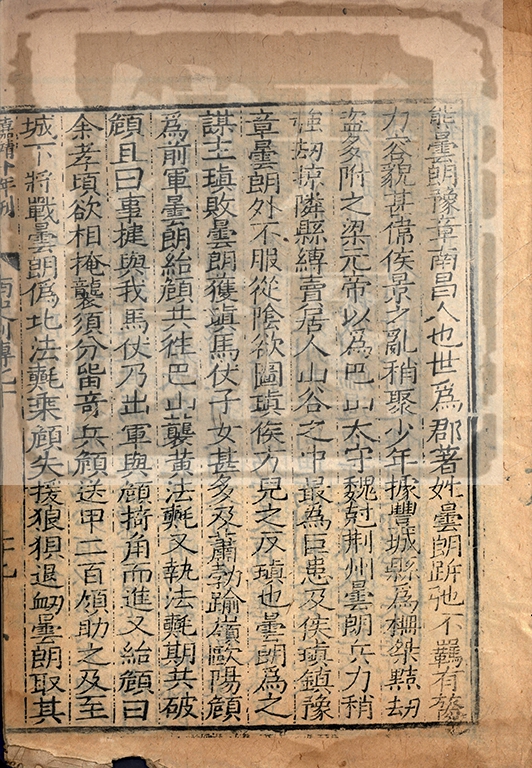 熊曇朗豫章南昌人也世爲郡著姓曇朗跅弛不羈有膂
力容貌甚偉侯景之亂稍聚少年據豐城縣爲柵桀黠刼
盗多附之梁元帝以爲巴山太守魏尅荆州曇朗兵力稍
強刼掠隣縣縛賣居人山谷之中最爲巨患及侯瑱鎮豫
章曇朗外不服從陰欲圖瑱侯方兒之反瑱也曇朗爲之
謀主瑱敗曇朗獲瑱馬仗子女甚多及蕭勃踰嶺歐陽頠
爲前軍曇朗紿頠共徃巴山襲黄法𣰋又執法𣰋期共破
頠且曰事揵與我馬仗乃出軍與頠掎角而進又紿頠曰
余孝頃欲相掩襲須分畱竒兵頠送甲二百領助之及至
城下將戰曇朗僞北法𣰋乘頠失援狼狽退衂曇朗取其
嘉靖十年刊
南史列傳七十